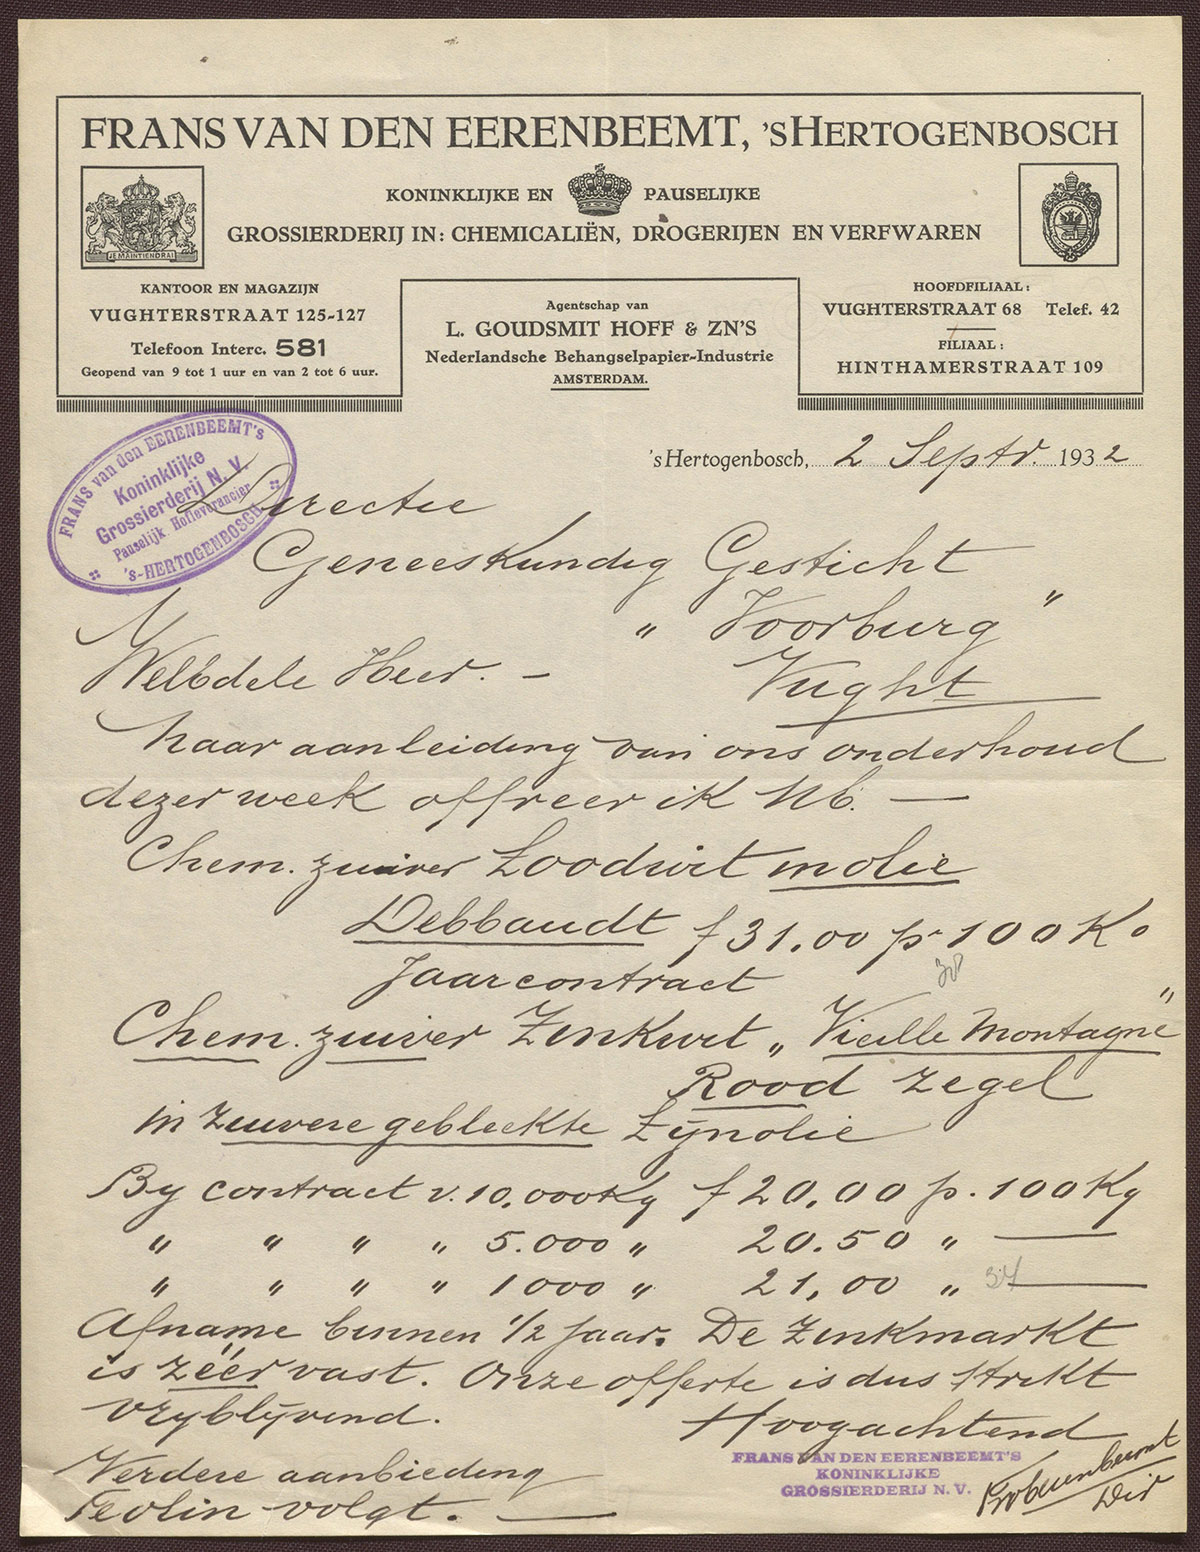 FRANS VAN DEN EERENBEEMT, 'SHERTOGENBOSCH
KONINKLIJKE EN PAUSELIJKE
GROSSIERDERIJ IN: CHEMICALIËN, DROGERIJEN EN VERFWAREN
JE MAINTIENDRAI
KANTOOR EN MAGAZIJN
VUGHTERSTRAAT 125-127
Telefoon Interc. 581
Geopend van 9 tot 1 uur en van 2 tot 6 uur.
Agentschap van
L. GOUDSMIT HOFF & ZN'S
Nederlandsche Behangselpapier-Industrie
AMSTERDAM.
HOOFDFILIAAL:
VUGHTERSTRAAT 68 Telef. 42
FILIAAL:
HINTHAMERSTRAAT 109
FRANS van den EERENBEEMT's
Koninklijke
Grossierderij N. V.
Pauselijk Hofleverancier
's-HERTOGENBOSCH
's Hertogenbosch, 2 Septr. 1932
Directie
Geneeskundig Gesticht
" Voorburg "
Vught
WelEdele Heer. —
Naar aanleiding van ons onderhoud
dezer week offreer ik Ub. —
Chem. zuiver Loodwit in olie
Debbaudt f 31,00 p. 100 Ko
Jaarcontract
Chem. zuiver Zinkwit „Vieille Montagne"
Rood zegel
in zuivere gebleekte Lijnolie
By contract v. 10,000 Kg f 20,00 p. 100 Kg
" " " " 5.000 " 20.50 " —
" " " " 1000 " 21,00 " —
Afname binnen 1/2 jaar. De Zinkmarkt
is zéér vast. Onze offerte is dus strikt
vryblijvend.
Hoogachtend
FRANS VAN DEN EERENBEEMT'S
KONINKLIJKE
GROSSIERDERIJ N. V.
Dir
Verdere aanbieding
Teolin volgt. —